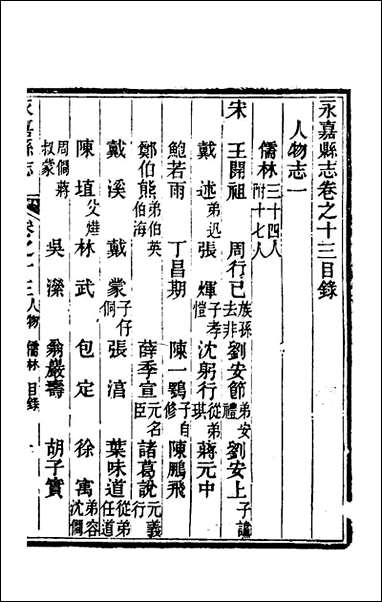 永嘉縣志卷之十三目錄
人物志一
儒林三十四人附十七人
宋 王開祖 周行已族孫去非 劉安節弟安禮 劉安上子
戴述弟迅 張煇子孝愷 沈躬行從弟琪 蔣元中
鮑若雨 丁昌期 陳一鶚子自修 陳鵬飛
鄭伯熊弟伯英伯海 薛季宣元名臣 諸葛說元義行
戴溪 戴蒙子仔侗 張淯 葉味道從弟任道
陳埴父燁 林武 包定 徐㝢弟容沈僩
周僩蔣叔蒙 吳濼 翁巖壽 胡子實
永嘉縣志 卷之十三人物 儒林 目錄